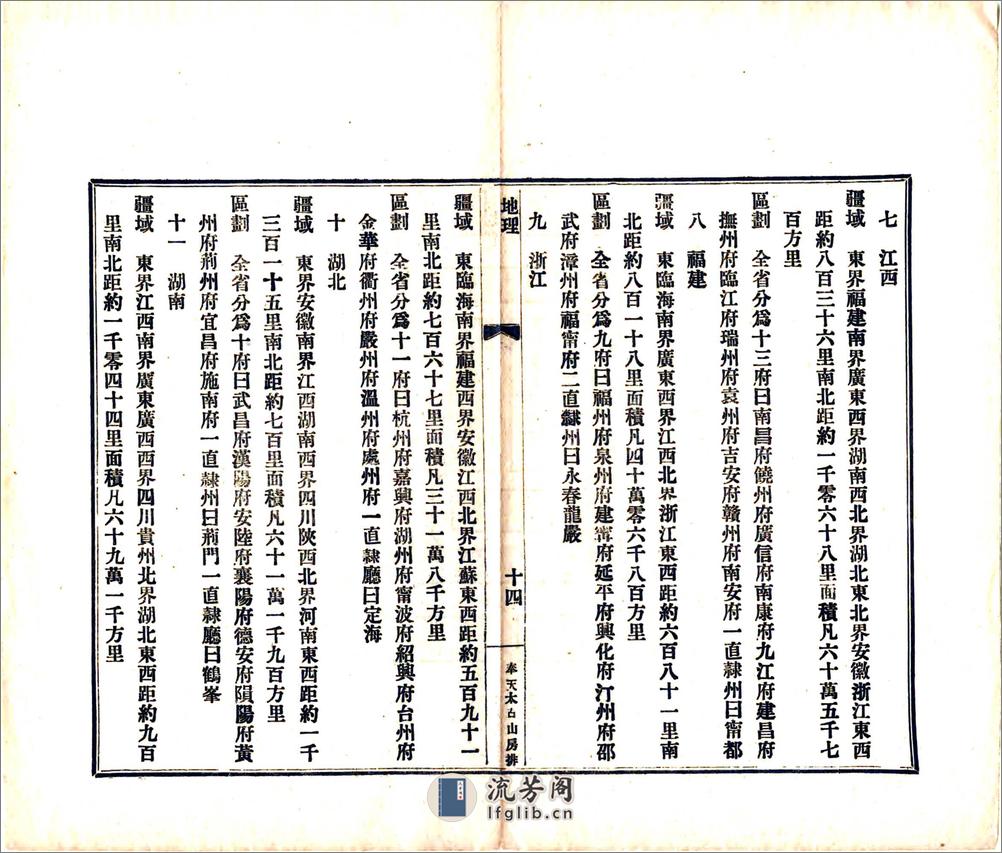 七　江西
疆域　東界福建南界廣東西界湖南西北界湖北東北界安徽浙江東西
距約八百三十六里南北距約一千零六十八里面積凡六十萬五千七
百方里
區劃　全省分爲十三府曰南昌府饒州府廣信府南康府九江府建昌府
撫州府臨江府瑞州府袁州府吉安府贛州府南安府一直隸州曰甯都
八　福建
疆域　東臨海南界廣東西界江西北界浙江東西距約六百八十一里南
北距約八百一十八里面積凡四十萬零六千八百方里
區劃　全省分爲九府曰福州府泉州府建甯府延平府興化府汀州府邵
武府漳州府福甯府二直隸州曰永春龍嚴
九　浙江
地理
十四
奉天太古山房排
疆域　東臨海南界福建西界安徽江西北界江蘇東西距約五百九十一
里南北距約七百六十七里面積凡三十一萬八千方里
區劃　全省分爲十一府曰杭州府嘉興府湖州府甯波府紹興府台州府
金華府衢州府嚴州府溫州府處州府一直隸廳曰定海
十　湖北
疆域　東界安徽南界江西湖南西界四川陝西北界河南東西距約一千
三百一十五里南北距約七百里面積凡六十一萬一千九百方里
區劃　全省分爲十府曰武昌府漢陽府安陸府襄陽府德安府隕陽府黃
州府荊州府宜昌府施南府一直隸州曰荊門一直隸廳曰鶴峯
十一　湖南
疆域　東界江西南界廣東廣西西界四川貴州北界湖北東西距約九百
里南北距約一千零四十四里面積凡六十九萬一千方里
流芳阁
lfglib.cn